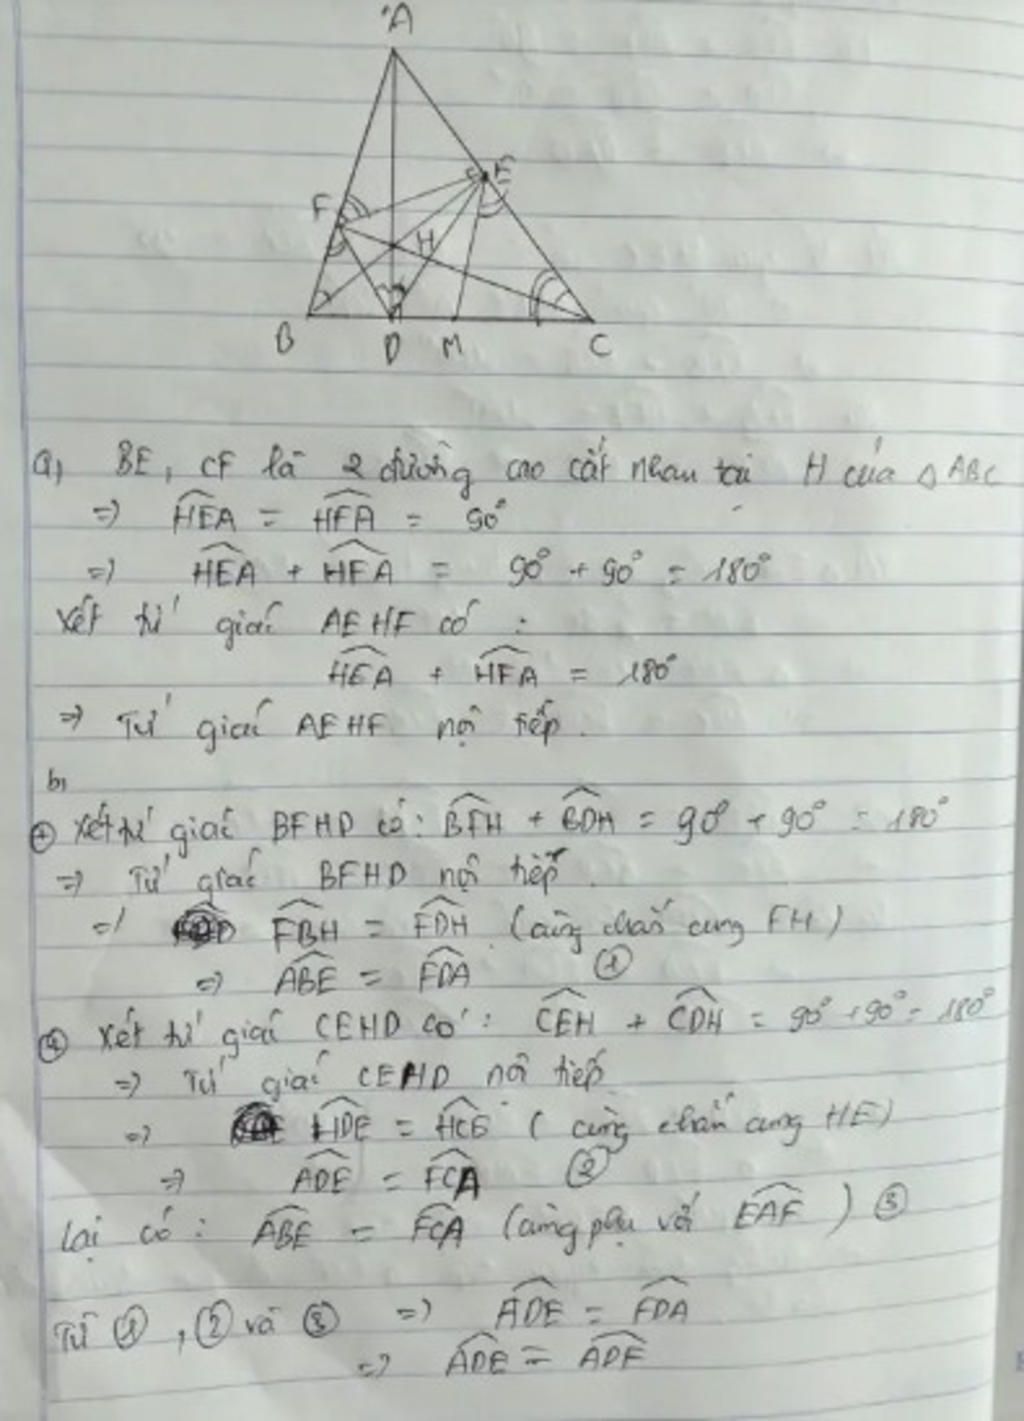 A
F
E
H
B D M C
a, BE, CF là 2 đường cao cắt nhau tại H của △ABC
=> HEA = HFA = 90°
=> HEA + HFA = 90° + 90° = 180°
Xét tứ giác AEHF có :
HEA + HFA = 180°
=> Tứ giác AEHF nội tiếp.
b,
+ Xét tứ giác BFHD có : BFH + BDH = 90° + 90° = 180°
=> Tứ giác BFHD nội tiếp.
=> FBH = FDH (cùng chắn cung FH)
=> ABE = FDA ①
+ Xét tứ giác CEHD có : CEH + CDH = 90° + 90° = 180°
=> Tứ giác CEHD nội tiếp
=> HDE = HCE (cùng chắn cung HE)
=> ADE = FCA ②
Lại có : ABE = FCA (cùng phụ với EAF) ③
Từ ①, ② và ③ => ADE = FDA
=> ADE = ADF